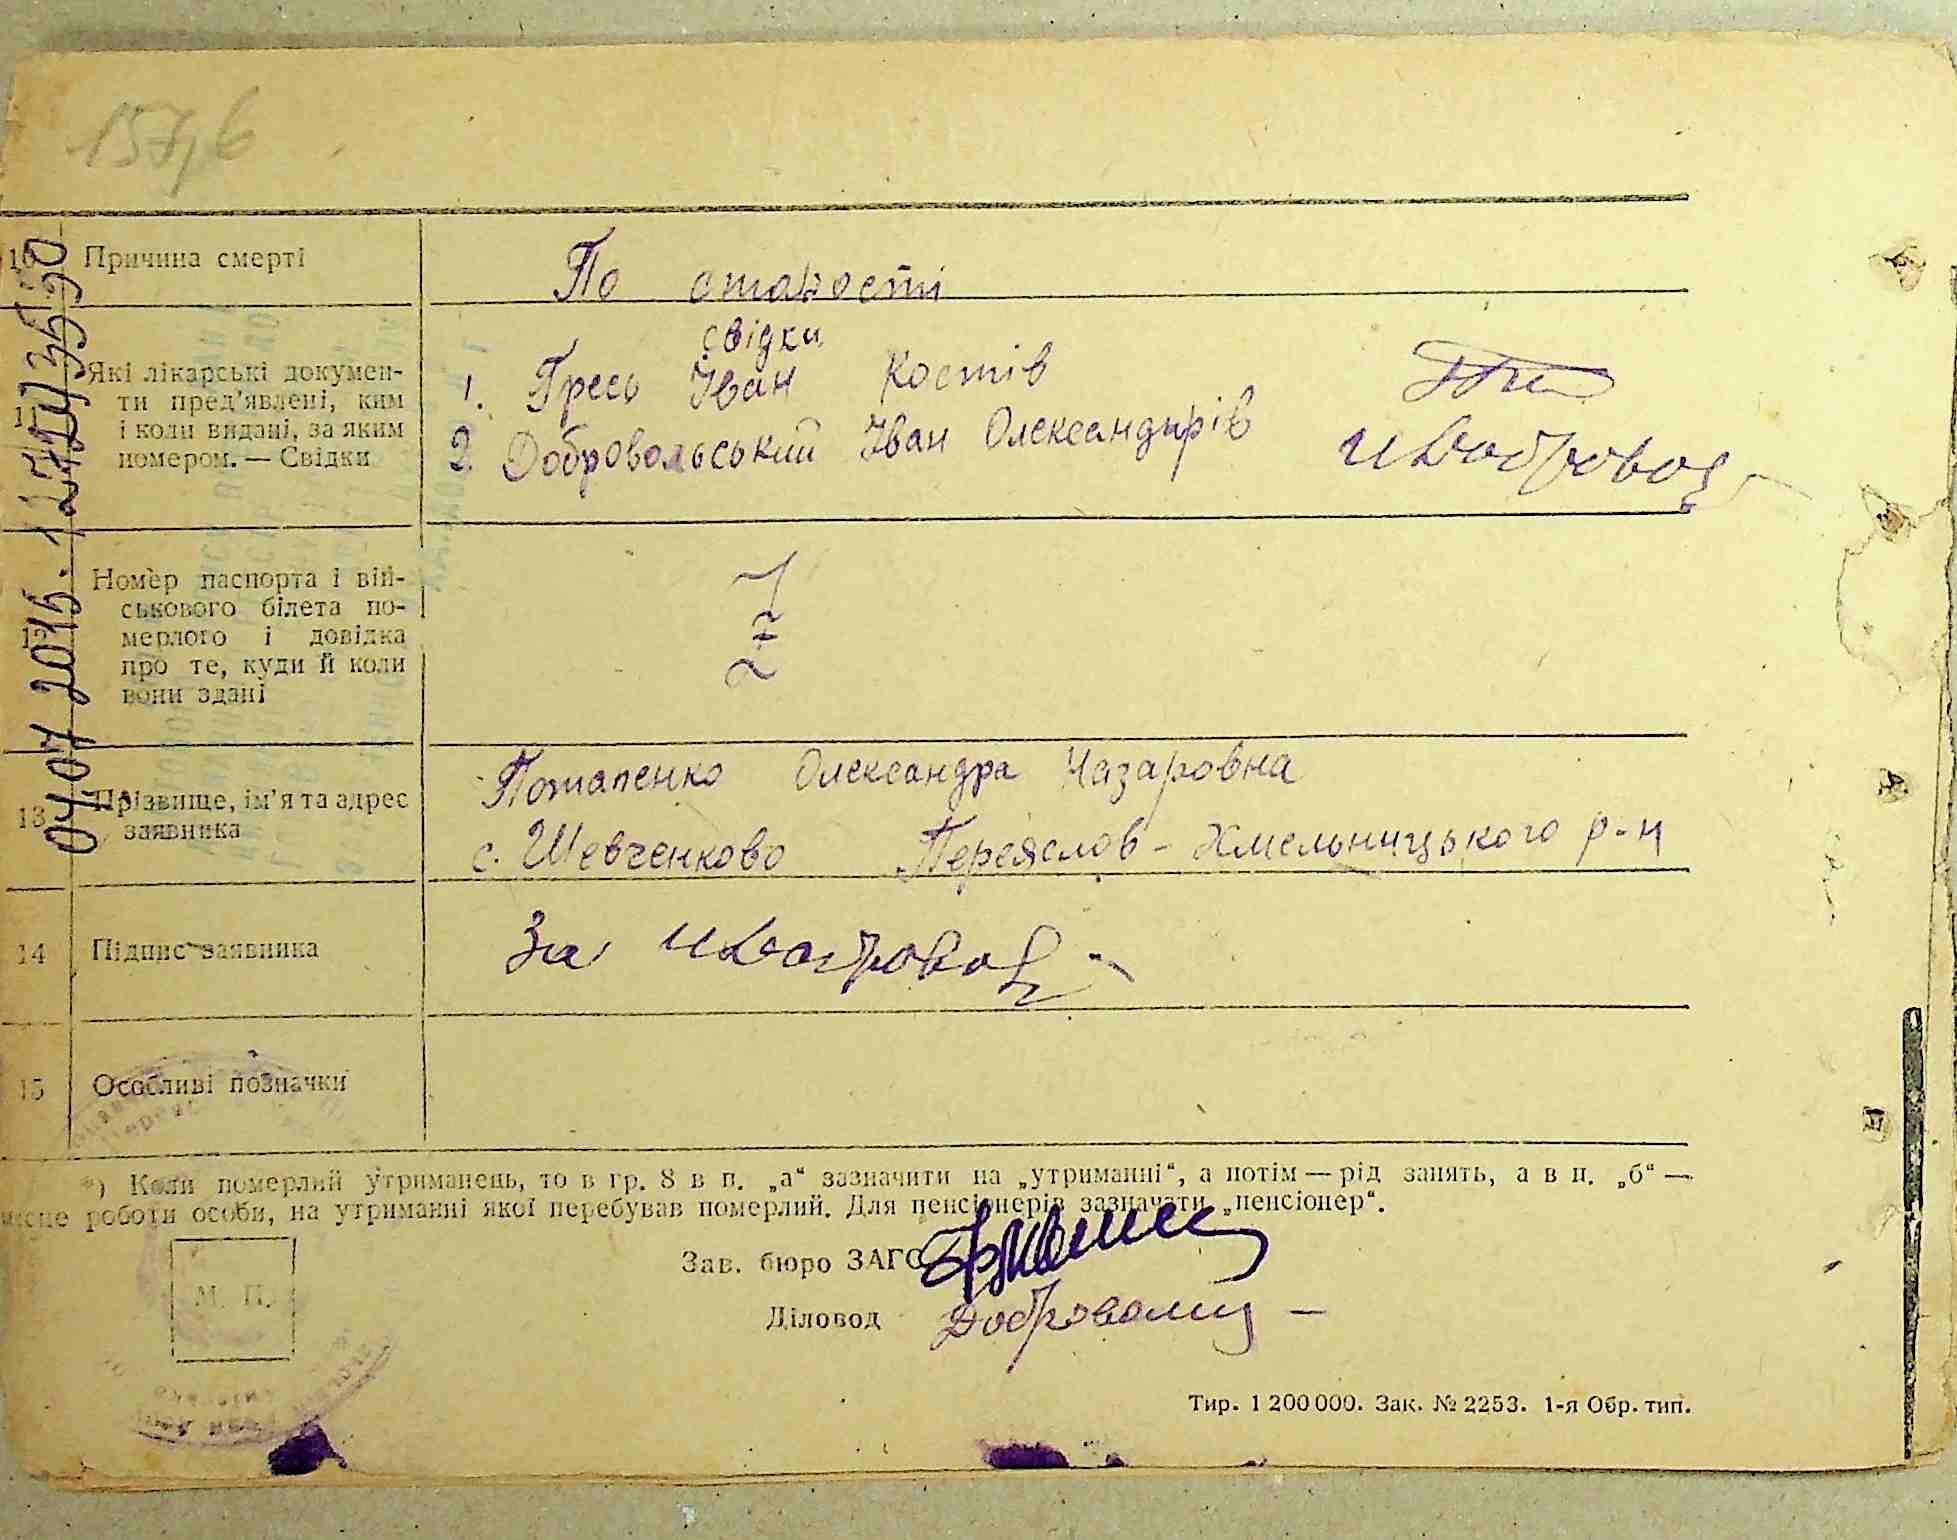 157,6
10 Причина смерті
По старості
свідки
11 Які лікарські докумен-
ти пред'явлені, ким
і коли видані, за яким
номером. — Свідки
1. Гресь Іван Костів
2. Добровольський Іван Олександрів
12 Номер паспорта і вій-
ськового білета по-
мерлого і довідка
про те, куди й коли
вони здані
13 Прізвище, ім'я та адрес
заявника
Потапенко Олександра Назаровна
с. Шевченково Переяслов-Хмельницького р-н
14 Підпис заявника
За
15 Особливі позначки
*) Коли померлий утриманець, то в гр. 8 в п. „а“ зазначити на „утриманні“, а потім — рід занять, а в п. „б“ —
місце роботи особи, на утриманні якої перебував померлий. Для пенсіонерів зазначати „пенсіонер“.
М. П.
Зав. бюро ЗАГС
Діловод
Тир. 1 200 000. Зак. № 2253. 1-я Обр. тип.
04.07 2015.